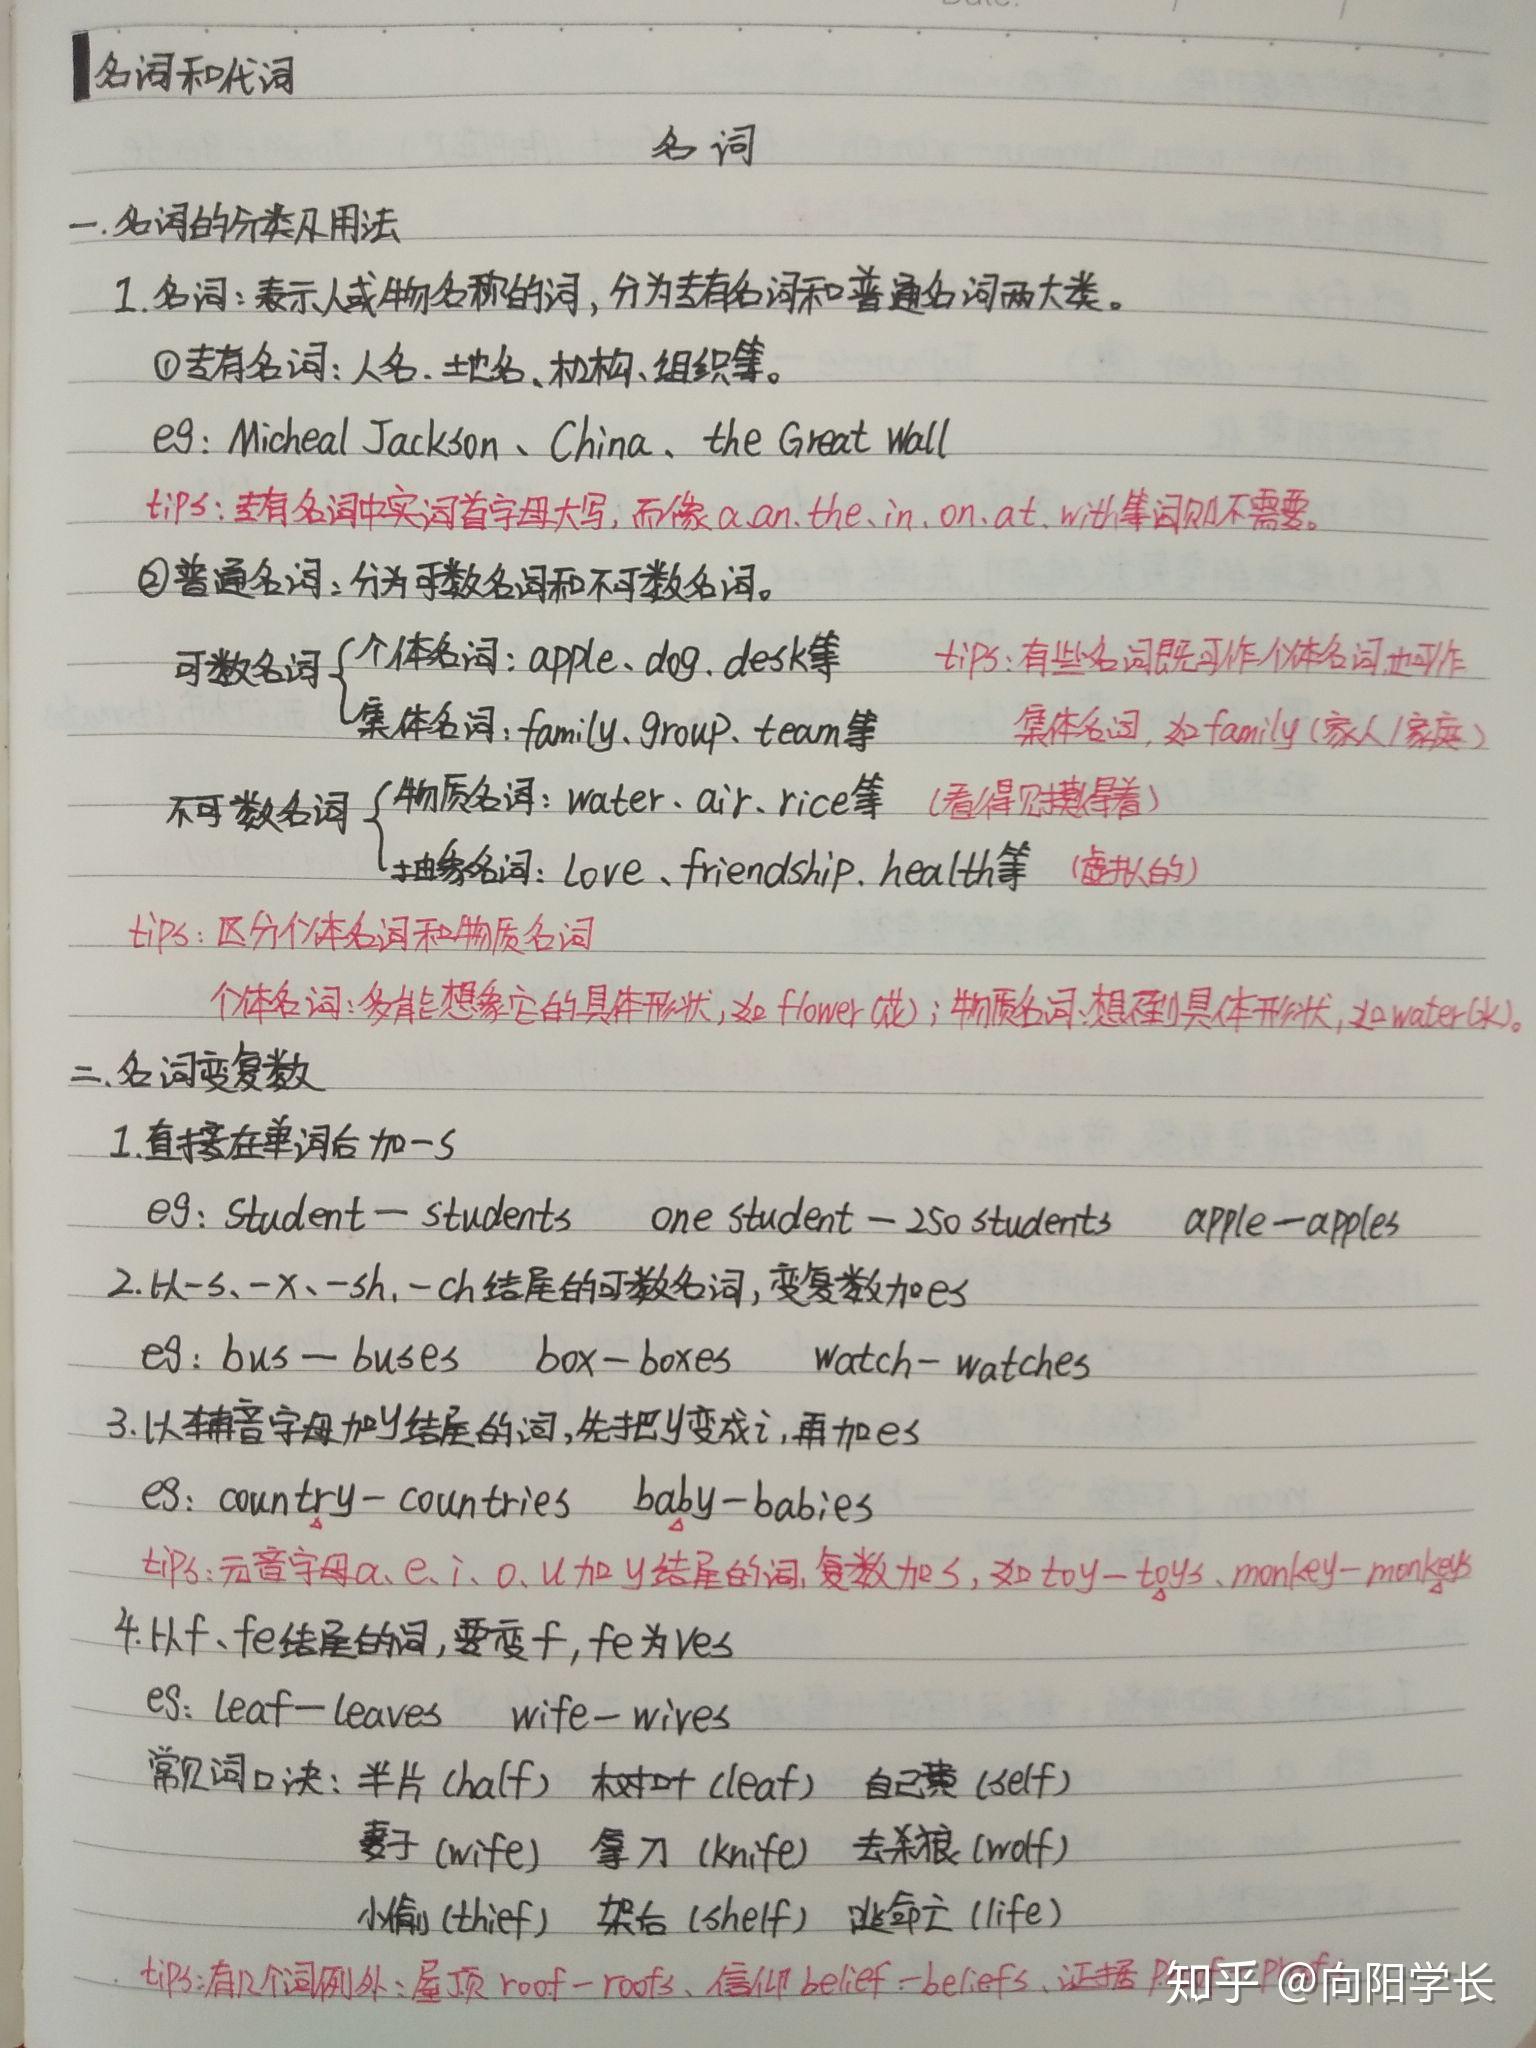 Date:
名词和代词
名词
一.名词的分类及用法
1.名词:表示人或物名称的词,分为专有名词和普通名词两大类。
①专有名词:人名、土地名、机构、组织等。
eg: Micheal Jackson、China、the Great Wall
tips:专有名词中实词首字母大写,而像a.an.the.in.on.at.with等词则不需要。
②普通名词:分为可数名词和不可数名词。
可数名词{个体名词:apple、dog、desk等 tips:有些名词既可作个体名词也可作
集体名词:family、group、team等 集体名词,如family(家人/家庭)
不可数名词{物质名词:water、air、rice等 (看得见摸得着)
抽象名词:love、friendship、health等 (虚拟的)
tips:区分个体名词和物质名词
个体名词:多能想象它的具体形状,如flower(花);物质名词:想不到具体形状,如water(水)。
二.名词变复数
1.直接在单词后加-s
eg: student — students one student — 250 students apple — apples
2.以-s、-x、-sh、-ch结尾的可数名词,变复数加es
eg: bus — buses box — boxes watch — watches
3.以辅音字母加y结尾的词,先把y变成i,再加es
eg: country — countries baby — babies
tips:元音字母a、e、i、o、u加y结尾的词,复数加s,如toy — toys、monkey — monkeys
4.以f、fe结尾的词,要变f,fe为ves
eg: leaf — leaves wife — wives
常见词口诀:半片(half) 树叶(leaf) 自己黄(self)
妻子(wife) 拿刀(knife) 去杀狼(wolf)
小偷(thief) 架后(shelf) 逃命亡(life)
tips:有几个词例外:屋顶roof — roofs、信仰belief — beliefs、证据
知乎 @向阳学长